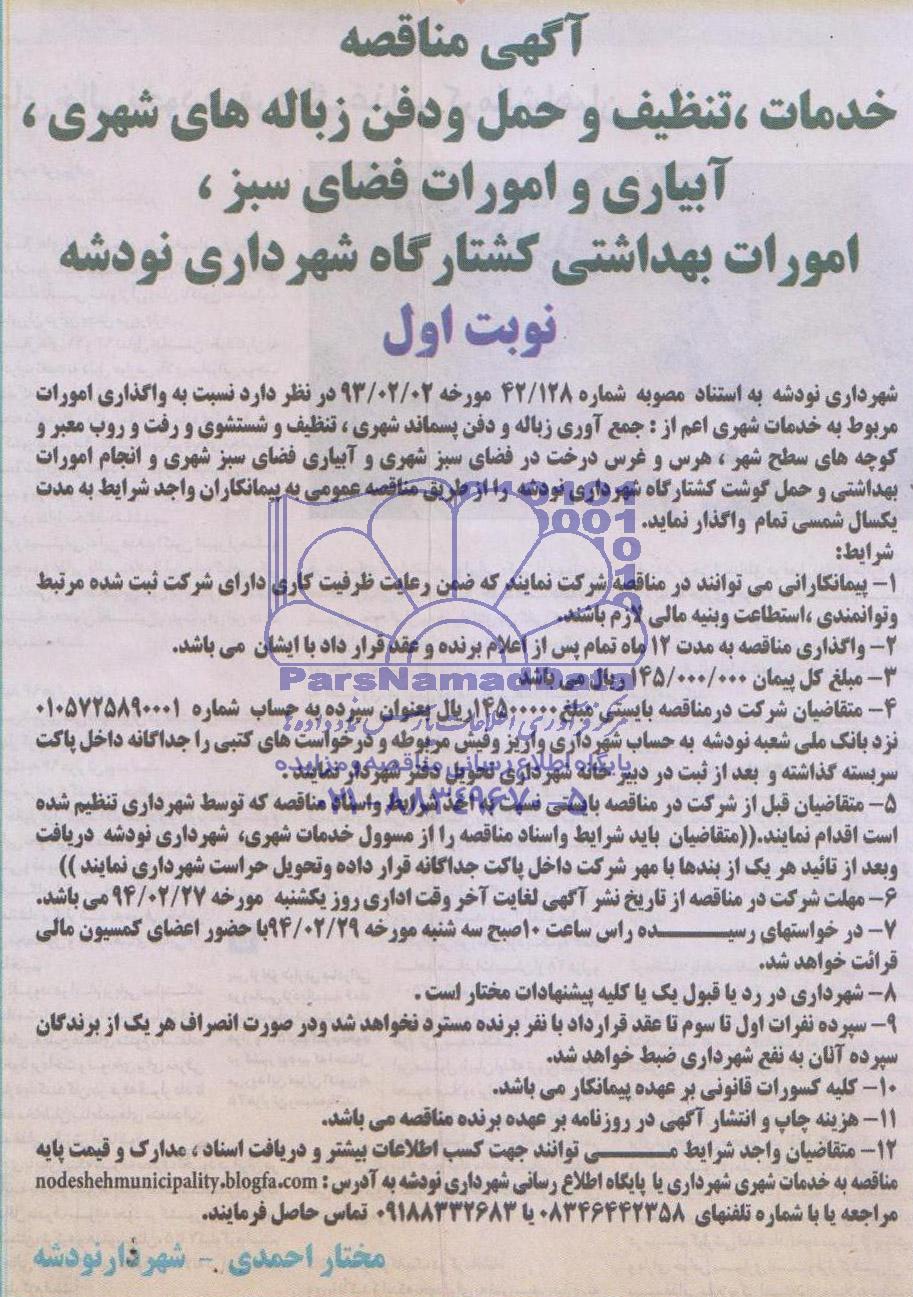 آگهی مناقصه
خدمات ،تنظیف و حمل ودفن زباله های شهری ،
آبیاری و امورات فضای سبز ،
امورات بهداشتی کشتارگاه شهرداری نودشه
نوبت اول
شهرداری نودشه به استناد مصوبه شماره ۴۲/۱۲۸ مورخه ۹۳/۰۲/۰۲ در نظر دارد نسبت به واگذاری امورات
مربوط به خدمات شهری اعم از : جمع آوری زباله و دفن پسماند شهری ، تنظیف و شستشوی و رفت و روپ معبر و
کوچه های سطح شهر ، هرس و غرس درخت در فضای سبز شهری و آبیاری فضای سبز شهری و انجام امورات
بهداشتی و حمل گوشت کشتارگاه شهرداری نودشه را از طریق مناقصه عمومی به پیمانکاران واجد شرایط به مدت
یکسال شمسی تمام واگذار نماید.
شرایط:
۱- پیمانکارانی می توانند در مناقصه شرکت نمایند که ضمن رعایت ظرفیت کاری دارای شرکت ثبت شده مرتبط
وتوانمندی ،استطاعت وبنیه مالی لازم باشند.
۲- واگذاری مناقصه به مدت ۱۲ ماه تمام پس از اعلام برنده و عقد قرار داد با ایشان می باشد.
۳- مبلغ کل پیمان ۱۴۵/۰۰۰/۰۰۰ ریال می باشد
ParsNamadData
۴- متقاضیان شرکت درمناقصه بایستی مبلغ ۱۴۵۰۰۰۰۰ریال بعنوان سپرده به حساب شماره ۰۱۰۵۷۲۵۸۹۰۰۰۱
نزد بانک ملی شعبه نودشه به حساب شهرداری واریز وفیش مربوطه و درخواست های کتبی را جداگانه داخل پاکت
پایگاه اطلاع رسانی مناقصه و مزایده
سربسته گذاشته و بعد از ثبت در دبیر خانه شهرداری تحویل دفتر شهردار نمایند .
۵- متقاضیان قبل از شرکت در مناقصه بایستی نسبت به اخذ شرایط و اسناد مناقصه که توسط شهرداری تنظیم شده
۰۲۱-۸۸۳۴۹۶۷۰-۵
است اقدام نمایند.((متقاضیان باید شرایط واسناد مناقصه را از مسوول خدمات شهری، شهرداری نودشه دریافت
وبعد از تائید هر یک از بندها با مهر شرکت داخل پاکت جداگانه قرار داده وتحویل حراست شهرداری نمایند ))
۶- مهلت شرکت در مناقصه از تاریخ نشر آگهی لغایت آخر وقت اداری روز یکشنبه مورخه ۹۴/۰۲/۲۷ می باشد.
۷- در خواستهای رسیـــــــــده راس ساعت ۱۰صبح سه شنبه مورخه ۹۴/۰۲/۲۹با حضور اعضای کمسیون مالی
قرائت خواهد شد.
۸- شهرداری در رد یا قبول یک یا کلیه پیشنهادات مختار است .
۹- سپرده نفرات اول تا سوم تا عقد قرارداد با نفر برنده مسترد نخواهد شد ودر صورت انصراف هر یک از برندگان
سپرده آنان به نفع شهرداری ضبط خواهد شد.
۱۰- کلیه کسورات قانونی بر عهده پیمانکار می باشد.
۱۱- هزینه چاپ و انتشار آگهی در روزنامه بر عهده برنده مناقصه می باشد.
۱۲- متقاضیان واجد شرایط مـــــــــی توانند جهت کسب اطلاعات بیشتر و دریافت اسناد ، مدارک و قیمت پایه
مناقصه به خدمات شهری شهرداری یا پایگاه اطلاع رسانی شهرداری نودشه به آدرس : nodeshehmunicipality.blogfa.com
مراجعه یا با شماره تلفنهای ۰۸۳۴۶۴۴۲۳۵۸ یا ۰۹۱۸۸۳۳۲۶۸۳ تماس حاصل فرمایند.
مختار احمدی - شهردارنودشه